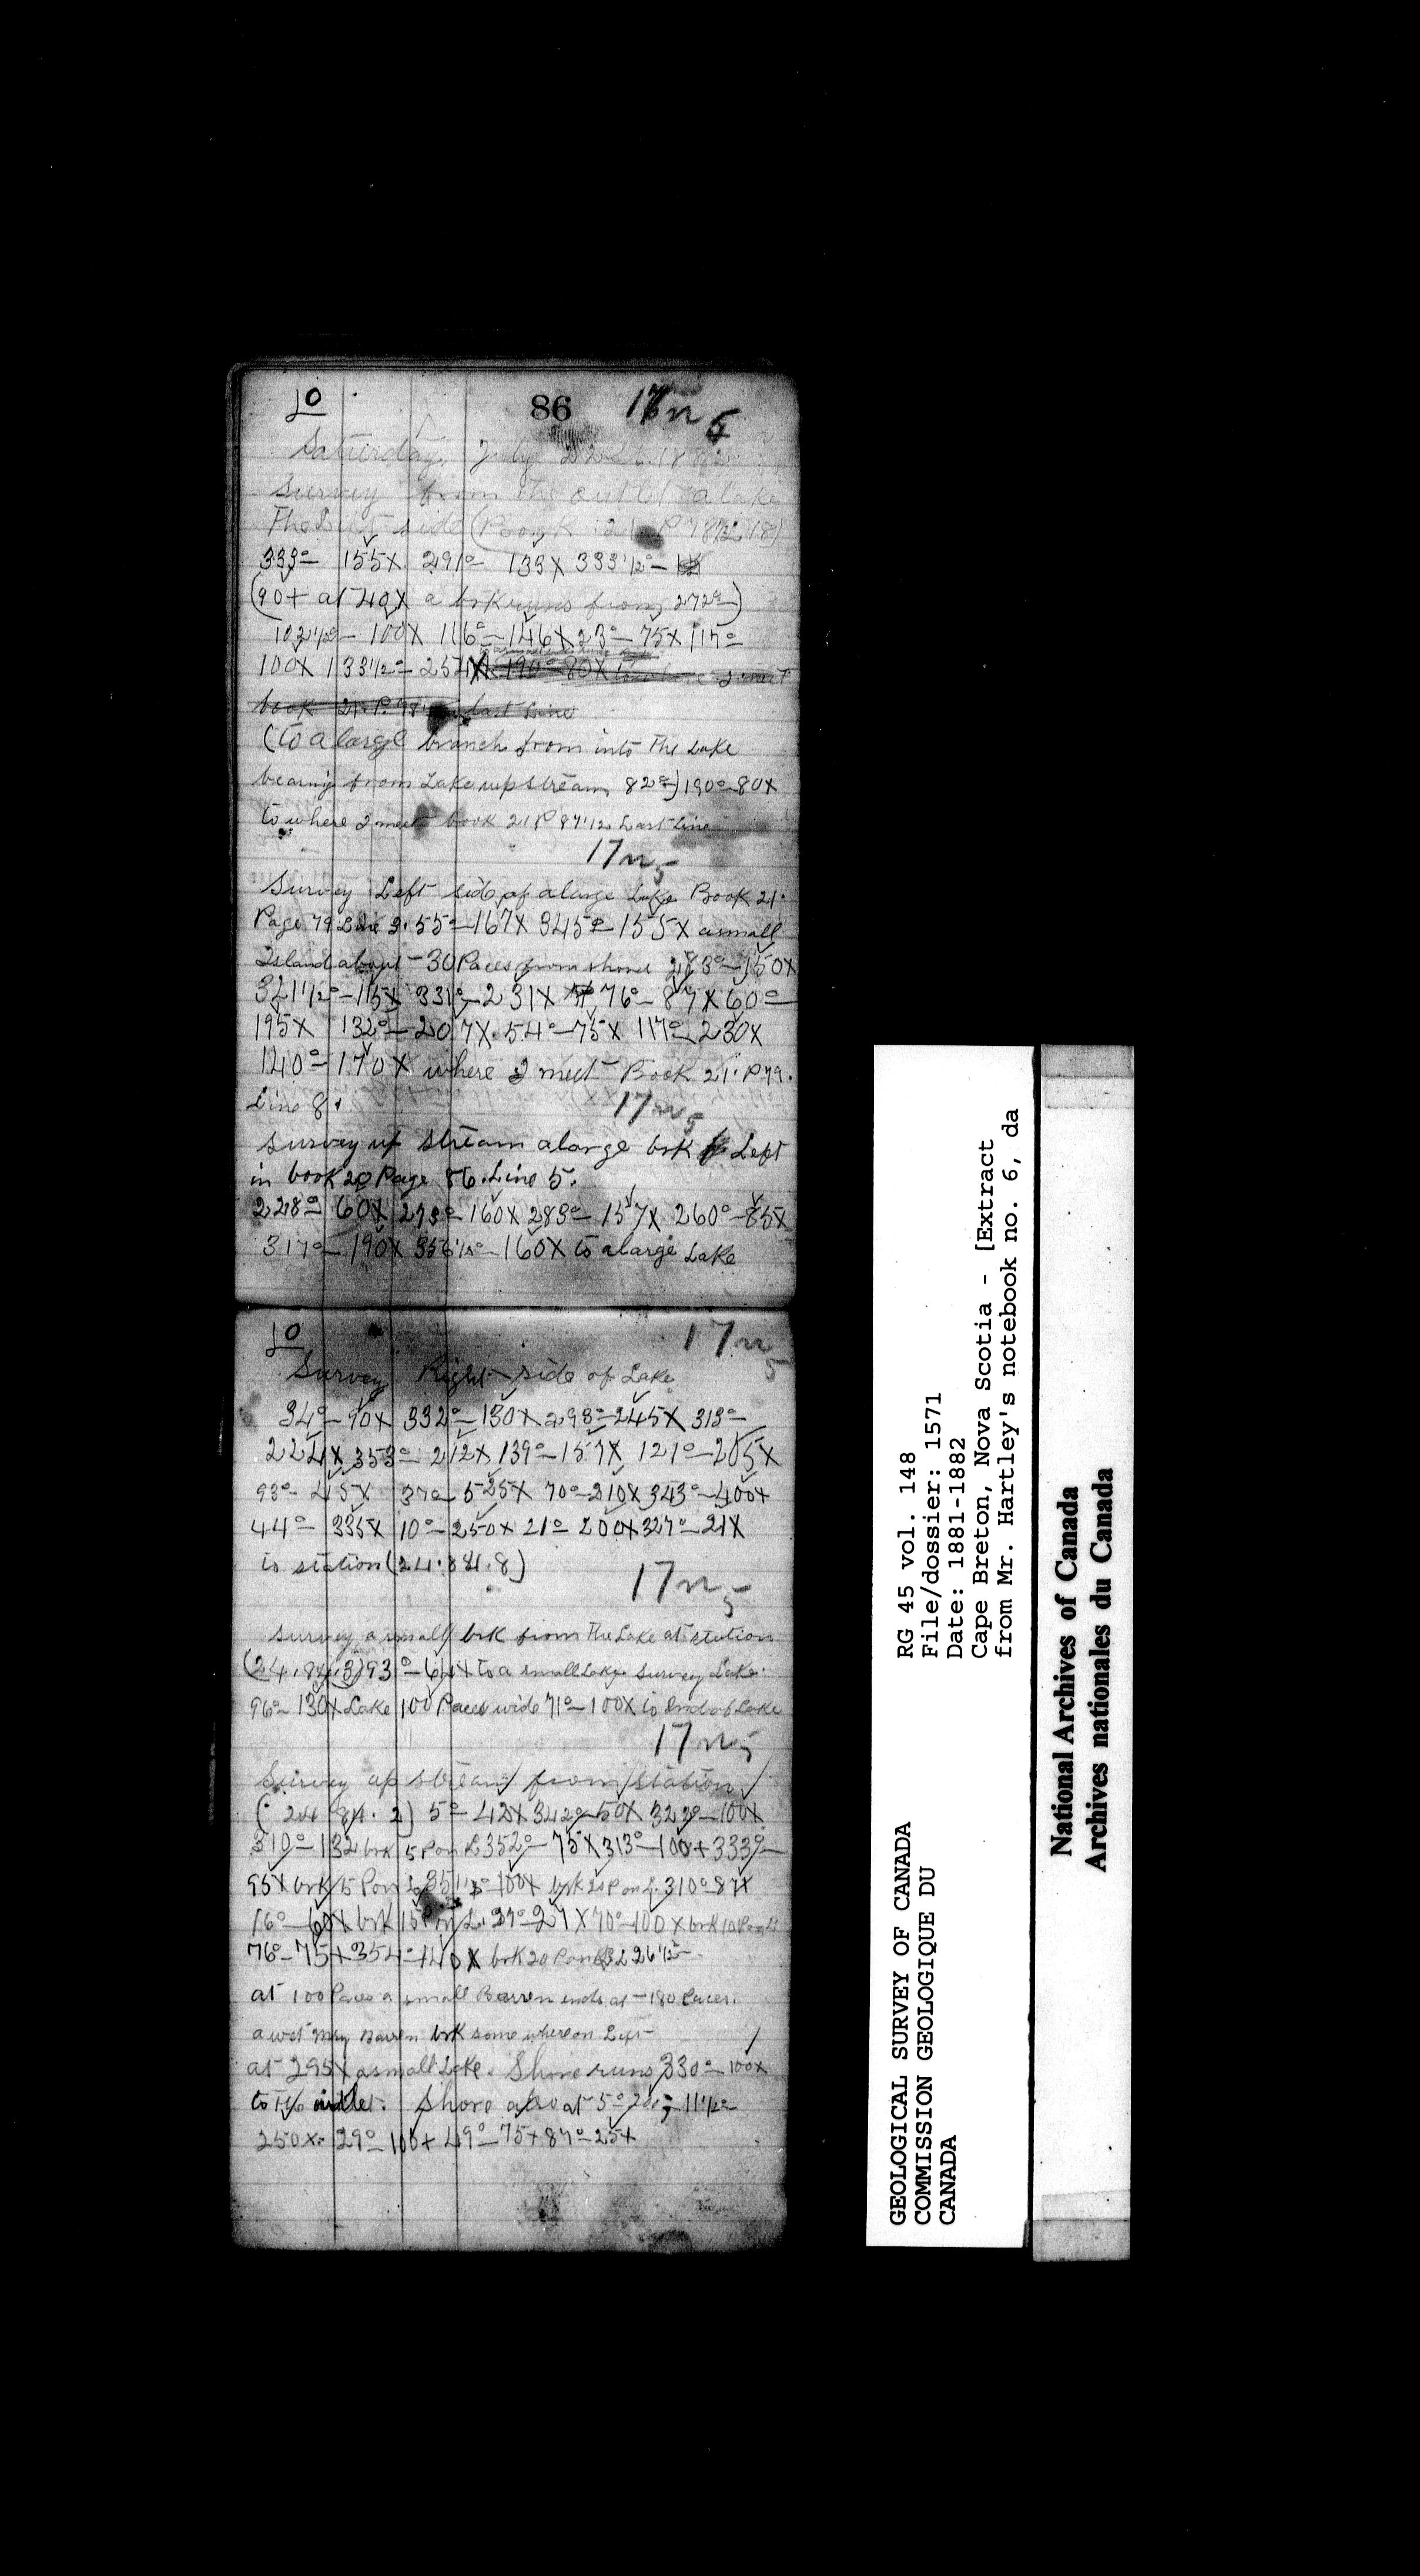 10 86 17 n 5
Saturday, July 22 1882
Survey from the outlet a lake
The Left side (Book 21 P 78 L 18)
333°– 155X 291°– 133X 333 1/2°–
(90+ at 40X a brk runs from 272°)
102 1/2°– 100X 116°–146X 23°–75X 117°
100X 133 1/2°– 257X 190°–80X to where I meet
book 21 P. last Line
(to a large branch from into The Lake
bearing from Lake up stream 82°) 190°–80X
to where I meet book 21 P Last Line
17 n 5
Survey Left side of a large Lake Book 21.
Page 79 Line 2. 55°–167X 345°–155X a small
Island about –30 Paces from shore 283°–150X
321 1/2°–115X 331°–231X 76°–87X 60°–
195X 132°–207X. 54°–75X 117°–230X
140°–170X where I meet Book 21. P 79.
Line 8.
17 n 5
Survey up stream a large brk Left
in book 20 Page 86. Line 5.
228°– 60X 273°–160X 283°–157X 260°–85X
317°–190X 356 1/2°–160X to a large Lake
10 17 n 5
Survey Right side of Lake
34°–90X 332°–130X 298°–245X 313°–
224X 353°–212X 139°–157X 121°–205X
93°– 45X 37°–525X 70°–210X 343°–400+
44°– 335X 10°–250X 21°–200X 327°–21X
to station (24.84.8)
17 n 5
Survey a small brk from The Lake at station
(24.84.3) 93°– to a small Lake survey Lake.
96°–130X Lake 100 Paces wide 71°–100X to End of Lake
17 n 5
Survey up stream from station
(24 84. 2) 5°–42X 342°–50X 322°–100X
310°–132 brk 5 P on L 352°–75X 313°–100+ 333°–
95X brk 15 P on L 351 1/2°–100+ brk 20 P on L. 310°–87X
16°–60X brk 15 P on L. 27X 70°–100X brk 10 P on L
76°–75+ 354°–140X brk 20 P on 326 1/2°–
at 100 Paces a small Barren ends at –180 Paces.
a wet Barren brk some where on Left
at 295X a small Lake. Shore runs 330°–100X
to The inlet. Shore also at 5° 11 1/2°
250X. 29°–100+ 49°–75+ 87°–25+
RG 45 vol. 148
File/dossier: 1571
Date: 1881-1882
Cape Breton, Nova Scotia - [Extract
from Mr. Hartley's notebook no. 6, da
GEOLOGICAL SURVEY OF CANADA
COMMISSION GEOLOGIQUE DU
CANADA
National Archives of Canada
Archives nationales du Canada